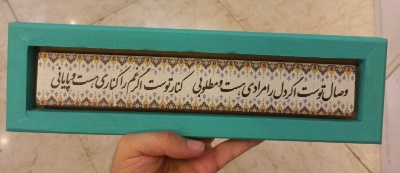 وصال توست اگر دل را مرادی هست و مطلوبی کنار توست اگر غم را کناری هست و پایانی